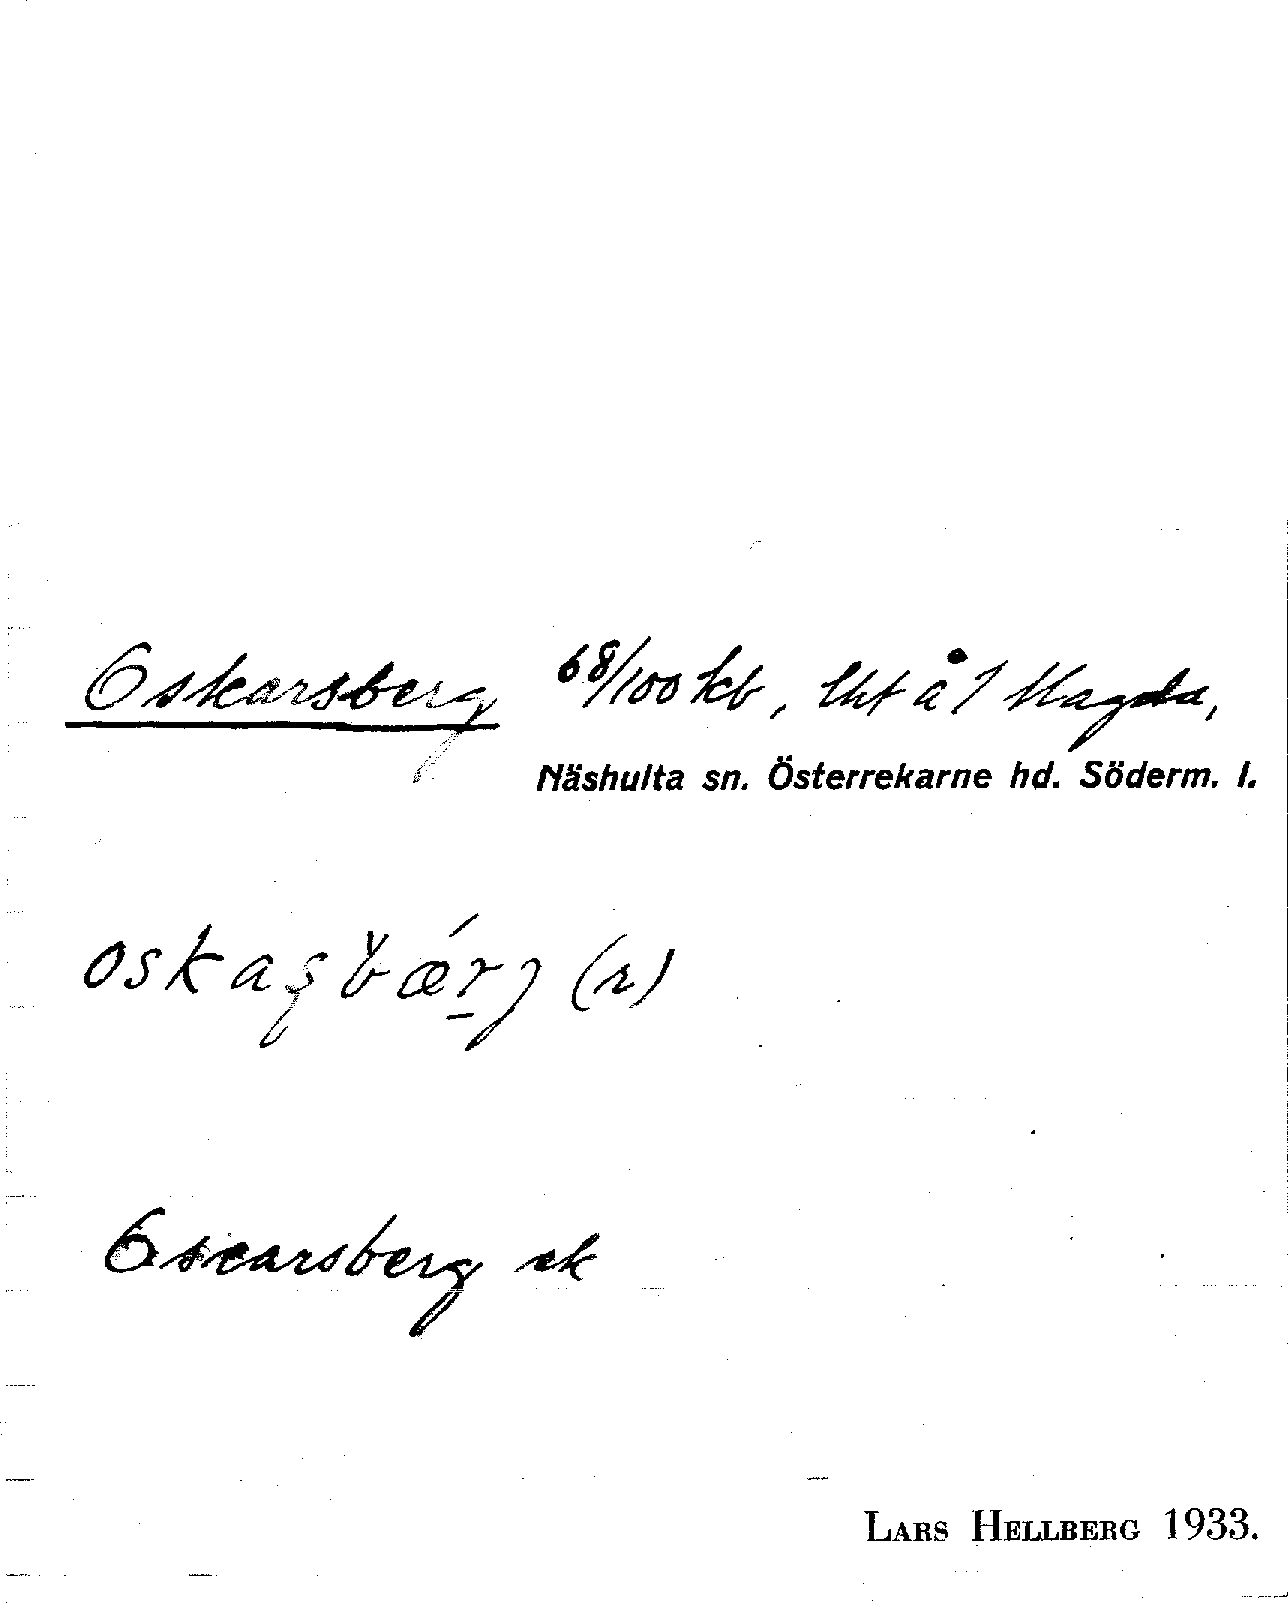 Oskarsberg 68/100 kb, lht å 1 Magda,
Näshulta sn. Österrekarne hd. Söderm. l.
oskaʂbǽrj (r)
Oscarsberg ek
LARS HELLBERG 1933.